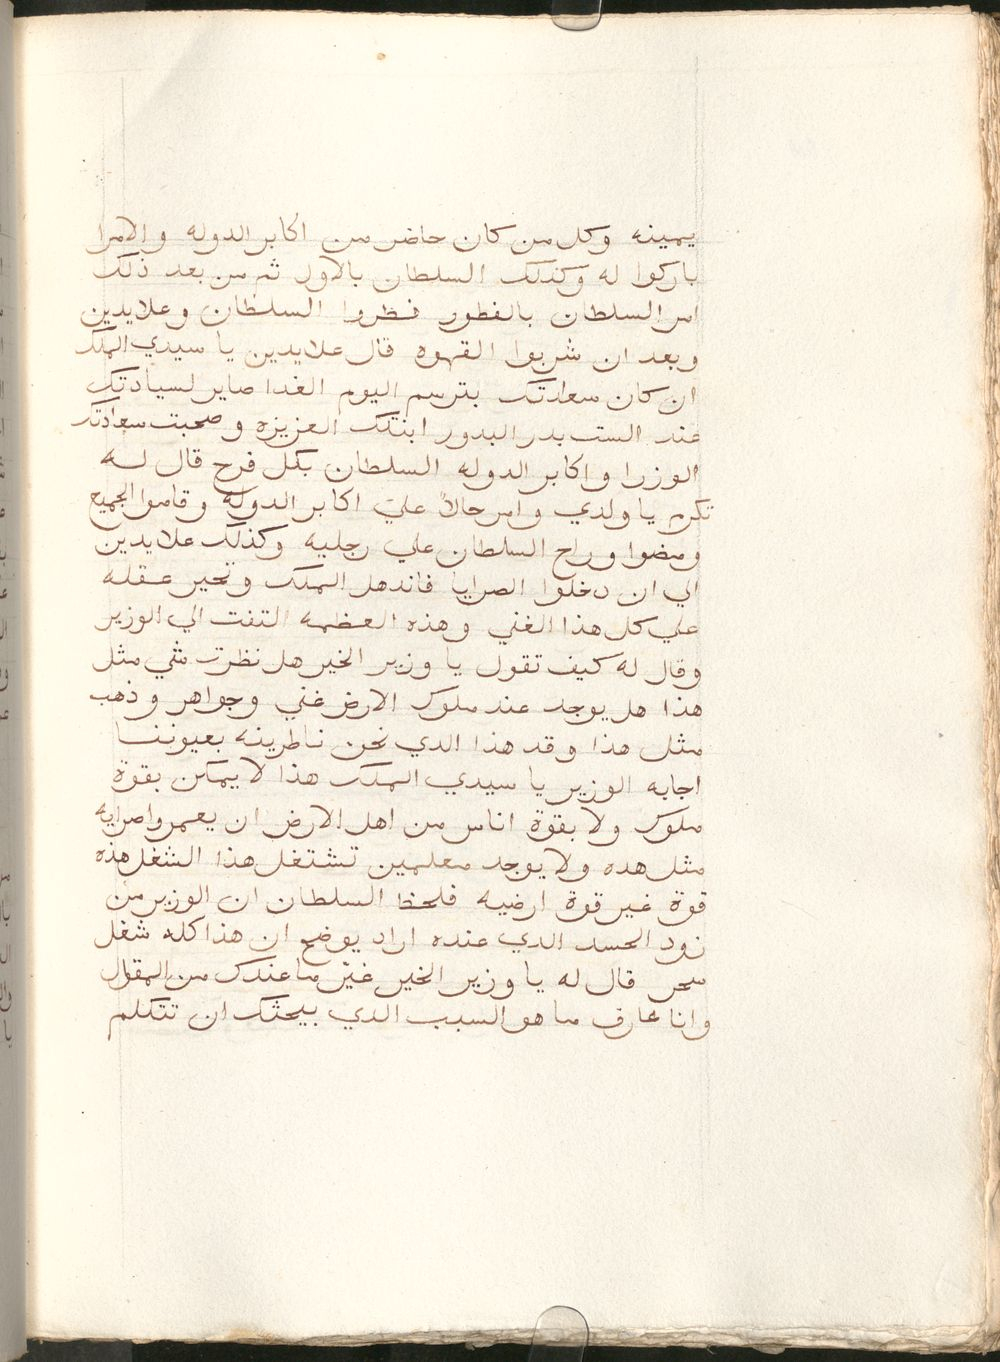 يمينه وكل من كان حاضر من اكابر الدوله والامرا
باركوا له وكذلك السلطان بالاول ثم من بعد ذلك
امر السلطان بالفطور فطروا السلطان وعلايدين
وبعد ان شربوا القهوه قال علايدين يا سيدي الملك
ان كان سعادتك بترسم اليوم الغدا صاير لسيادتك
عند الست بدر البدور ابنتك العزيزه وصحبت سعادتك
الوزرا واكابر الدوله السلطان بكل فرح قال له
تكرم يا ولدي وامر حالاً علي اكابر الدوله وقاموا الجميع
ومضوا وراح السلطان علي رجليه وكذلك علايدين
الي ان دخلوا الصرايا فاندهل الملك وتحير عقله
علي كل هذا الغني وهذه العظمه التفت الي الوزير
وقال له كيف تقول يا وزير الخير هل نظرت شي مثل
هذا هل يوجد عند ملوك الارض غني وجواهر وذهب
مثل هذا وقد هذا الدي نحن ناطرينه بعيوننا
اجابه الوزير يا سيدي الملك هذا لا يمكن بقوة
ملوك ولا بقوة اناس من اهل الارض ان يعمروا صرايه
مثل هده ولا يوجد معلمين تشتغل هذا الشغل هذه
قوة غير قوة ارضيه فلحظ السلطان ان الوزير من
زود الحسد الدي عنده اراد يوضح ان هذا كله شغل
سحر قال له يا وزير الخير غيّر ما عندك من المقال
وانا عارف ما هو السبب الدي بيحثك ان تتكلم